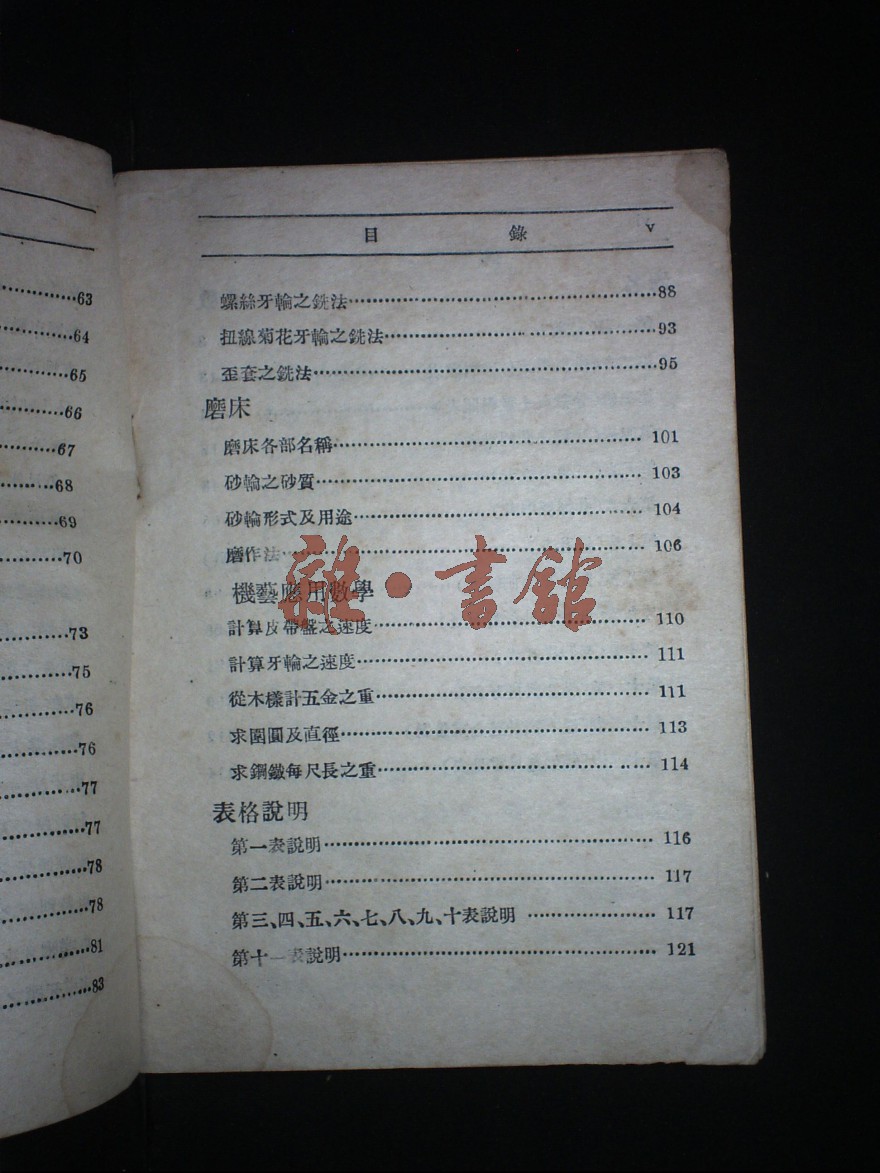 63
64
65
66
67
68
69
70
73
75
76
76
77
77
78
78
81
83
目 錄 v
螺絲牙輪之銑法 88
扭線菊花牙輪之銑法 93
歪套之銑法 95
磨床
磨床各部名稱 101
砂輪之砂質 103
砂輪形式及用途 104
磨作法 106
機藝應用數學
計算皮帶盤之速度 110
計算牙輪之速度 111
從木樣計五金之重 111
求圍圓及直徑 113
求鋼鐵每尺長之重 114
表格說明
第一表說明 116
第二表說明 117
第三、四、五、六、七、八、九、十表說明 117
第十一表說明 121
雜·書館